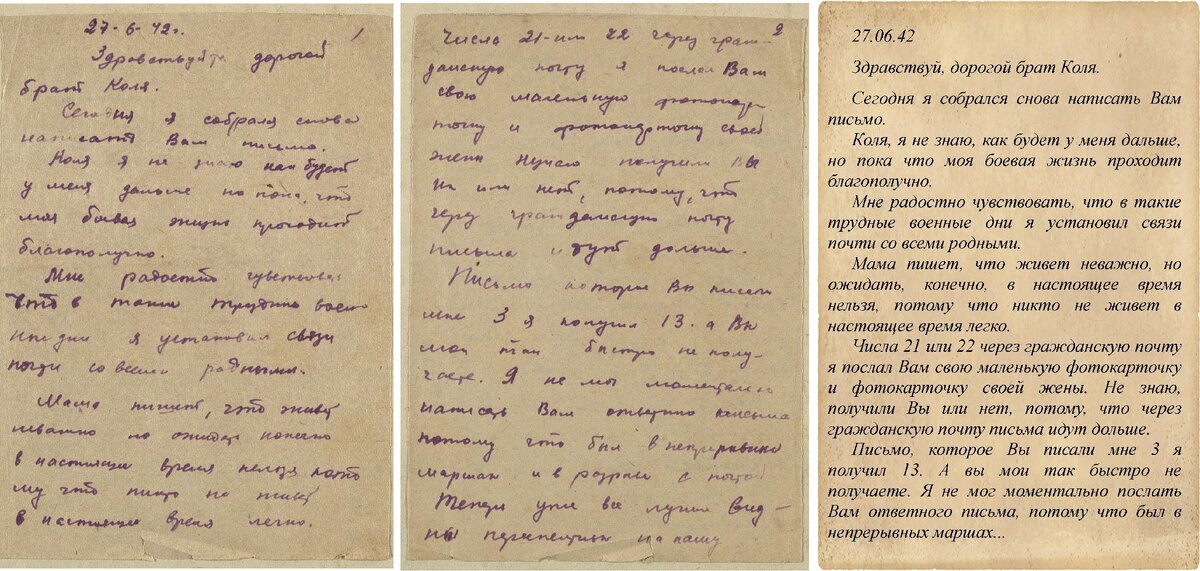 27-6-42г.
1
Здравствуйте дорогой
брат Коля.
Сегодня я собрался снова
написать Вам письмо.
Коля я не знаю как будет
у меня дальше но пока, что
моя боевая жизнь проходит
благополучно.
Мне радостно чувствовать
что в такие трудные воен
ные дни я установил связи
почти со всеми родными.
Мама пишет, что живет
неважно но ожидать конечно
в настоящее время нельзя пото
му что никто не живет
в настоящее время легко.
2
Числа 21-или 22 через граж-
данскую почту я послал Вам
свою маленькую фотокар
точку и фотокарточку своей
жены получили Вы
их или нет, потому, что
через гражданскую почту
письма идут дольше.
Письмо которое Вы писали
мне 3 я получил 13. а Вы
мои так быстро не полу-
чаете. Я не мог моментально
написать Вам ответного письма
потому что был в непрерывных
маршах и в разрыве с почтой
Теперь уже все лучше вид-
ны перспективы на нашу
27.06.42
Здравствуй, дорогой брат Коля.
Сегодня я собрался снова написать Вам
письмо.
Коля, я не знаю, как будет у меня дальше,
но пока что моя боевая жизнь проходит
благополучно.
Мне радостно чувствовать, что в такие
трудные военные дни я установил связи
почти со всеми родными.
Мама пишет, что живет неважно, но
ожидать, конечно, в настоящее время
нельзя, потому что никто не живет в
настоящее время легко.
Числа 21 или 22 через гражданскую почту
я послал Вам свою маленькую фотокарточку
и фотокарточку своей жены. Не знаю,
получили Вы или нет, потому, что через
гражданскую почту письма идут дольше.
Письмо, которое Вы писали мне 3 я
получил 13. А вы мои так быстро не
получаете. Я не мог моментально послать
Вам ответного письма, потому что был в
непрерывных маршах...